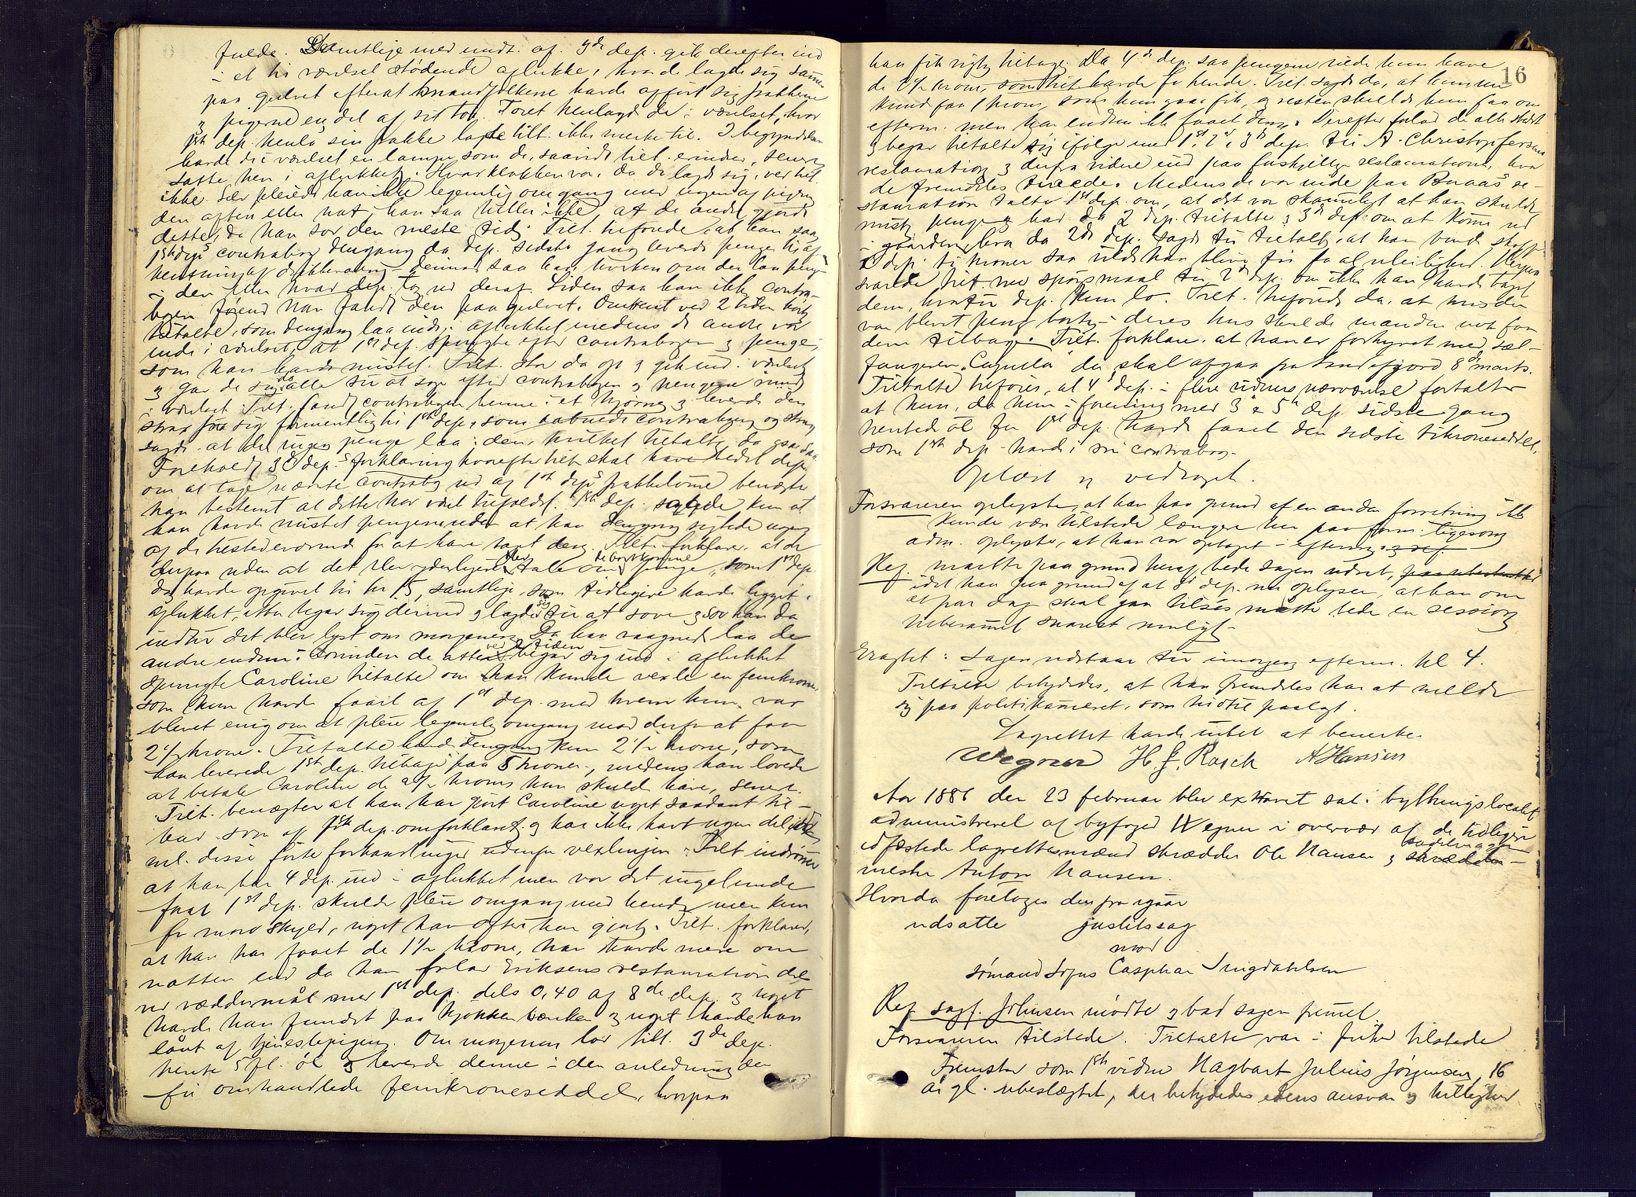 fulde. Samtlige med undt. af 3de dep. gik derefter ind
i et til værelset stødende aflukke, hvor de lagde sig sammen
paa gulvet efterat mandfolkene havde afført sig frakkerne
og pigerne en del af sit tøj. Foret henlagde de i værelset, hvor
1ste dep. henlo sin frakke lagde tilt. ikke merke til. I begyndelsen
havde de i værelset en lampe, som de, saavidt tilt. erindrer, senere
satte hen i aflukket. Hvad klokken var, da de lagde sig, ved tilt.
ikke. Selv pleiede han ikke legemlig omgang med nogen af pigerne
den aften eller nat; han saa heller ikke, at de andre gjorde
dette, da han sov den meste tid. Tilt. hefoide, at han saa
1ste dep's contrabog dengang da dep. sidste gang leverede penge til
hentning af drikkevarer, denne saa han hverken om der laa penge
i den eller hvad dep. tog ud deraf. Siden saa han ikke contra-
bogen førend han fandt den paa gulvet. Omtrent ved 2 tiden hørte
tiltalte, som dengang laa inde i aflukket medens de andre var
inde i værelset, at 1ste dep. spurgte efter contrabogen og penge,
som han havde mistet. Tilt. stod da op og gik ind i værelset
og gav de sig da alle til at søge efter contrabogen og pengene rundt
i værelset. Tilt. fandt contrabogen henne i et hjørne og leverede den
strax fra sig formentlig til 1ste dep., som aabnede contrabogen og strax
sagde at der ingen penge laa i den, hvilket tiltalte da ogsaa saa.
Foreholdt 3de dep.'s forklaring hvorefter tilt. skal have bedet dep.
om at tage nævnte contrabog ud af 1ste dep's frakkelomme benægter
han bestemt at dette har været tilfældet. 1ste dep. sagde kun at
han havde mistet pengene uden at han dengang sigtede nogen
af de tilstedeværende for at have taget dem. Tilt. forklarer, at de
derpaa uden at det blev yderligere tale om de bortkomne penge, som 1ste dep.
da havde opgivet til kr 15, samtlige, som tidligere havde ligget i
aflukket, atter begav sig derind og lagde sig til at sove og sov han da
indtil det blev lyst om morgenen. Da han vaagnede laa de
andre endnu. Forinden de atter ved 2 tiden begav sig ind i aflukket
spurgte Caroline tiltalte om han kunde vexle en femkrone,
som hun havde faaet af 1ste dep. med hvem hun var
blevet enig om at pleie legemlig omgang mod derfor at faa
2 1/2 krone. Tiltalte havde dengang kun 2 1/2 krone, som
han leverede 1ste dep. tilbage paa 5 kroner, medens han lovede
at betale Caroline de 2 1/2 krone hun skulde have, senere.
Tilt. benægter at han har gjort Caroline noget saadant til-
bud som af 1ste dep. omforklaret og har ikke havt nogen del
disse første forhandlinger udenfor vexlingen. Tilt. indrømmer
at han bar 4 dep. ind i aflukket men var det ingenlunde
for at 1ste dep. skulde pleie omgang med hende, men kun
for moro skyld, noget han ofte har gjort. Tilt. forklarer,
at han har faaet de 1 1/2 krone, han havde mere om
natten end da han forlod Eriksens restauration dels
ved væddemål med 1ste dep. dels 0,40 af 8de dep. og noget
havde han fundet paa kjøkken bænken og noget havde han
lånt af tjenestepigen. Om morgenen lod tilt. 3de dep.
hente 5 fl. öl og leverede denne i den anledning den
før omhandlede femkroneseddel, hvorpaa
16
han fik rigtig tilbage. Da 4de dep. saa pengene vilde hun have
de 2 1/2 krone, som tilt. havde for hende. Tilt. sagde da, at hun nu
kund faa 1 krone, som hun ogsaa fik, og resten skulde hun faa om
efterm. men har endnu ikke faaet den. Derefter forlod de alle stedet
og begav tiltalte sig ifølge med 1ste, 2den, 3de dep. til A. Christophersens
restauration og derfra videre ind paa forskjellige restaurationer, hvor
de fremdeles turede. Medens de var inde paa Braaes re-
stauration talte 1ste dep. om, at det var skammeligt at han skulde
miste pengene og bad da 2 dep. tiltalte og 3de dep. om at komme ud
i gaarden, hvor da 2de dep. sagde til tiltalte, at han burde skaffe
1 dep. ti kroner saa vilde han blive fri for al uleilighed. Herpaa
svarede tilt. med spørgsmaal til 2de dep. om ikke han havde taget
dem, hvortil dep. kun lo. Tilt. tilføiede da, at hvis den
var blevet penge borte i deres hus skulde manden nok faa
dem tilbage. Tilt. forklarer, at han er forhyret med sæl-
fangeren "Capella" der skal afgaa fra Sandefjord 8de marts.
Tiltalte tilføier, at 4de dep. i flere vidners nærværelse fortalte
at hun, da hun i forening med 3de & 5te dep. sidste gang
hentede öl for 1ste dep. havde faaet den sidste tikroneseddel,
som 1ste dep. havde i sin contrabog.
Oplæst og vedtaget.
Forsvareren oplyste, at han paa grund af en anden forretning ikke
kunde være tilstede længere hen paa form. ligesom
adm. oplyste, at han var optaget i efterm.
Ref. maatte paa grund heraf bede sagen udsat,
idet han paa grund af at dep. nu oplyser, at han om
et par dage skal gaa tilsøs maatte bede en session
berammet snarest muligt.
Eragtet: Sagen udstaar til imorgen efterm. kl 4.
Tiltalte betydedes, at han fremdeles har at melde
sig paa politikammeret, som hidtil paalagt.
Lagrettet havde intet at bemerke.
Wegner H. J. Rasch A Hansen
Aar 1886 den 23 februar blev extraret sat i bythingslocalet
administreret af byfoged Wegner i overvær af de tidligere
edfæstede lagrettemænd skrædder Ole Hansen og sadelmager-
mester Anton Hansen.
Hvorda foretoges den fra igaar
udsatte justitssag
mod
sømand Sofus Casphar Ingdahlsen
Ref. sagf. Johnsen mødte og bad sagen fremmet.
Forsvareren tilstede. Tiltalte var i frihed tilstede
Fremstod som 1ste vidne Hagbart Julius Jørgensen, 16
år gl. ubeslægtet, der betydedes edens ansvar og hellighed.